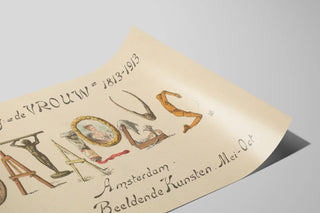 de VROUW = 1813-1913
CATALOGUS.
Amsterdam.
Beeldende Kunsten. Mei-Oct